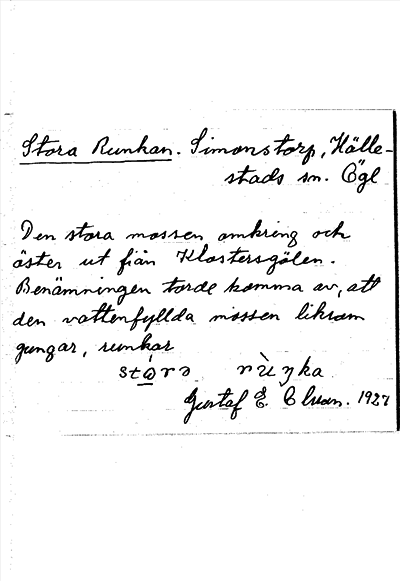 Stora Runkan. Simonstorp, Hälle-
stads sn. Ögl
Den stora mossen omkring och
öster ut från Klostersgölen.
Benämningen torde komma av, att
den vattenfyllda mossen liksom
gungar, runkar
Gustaf E. 1927